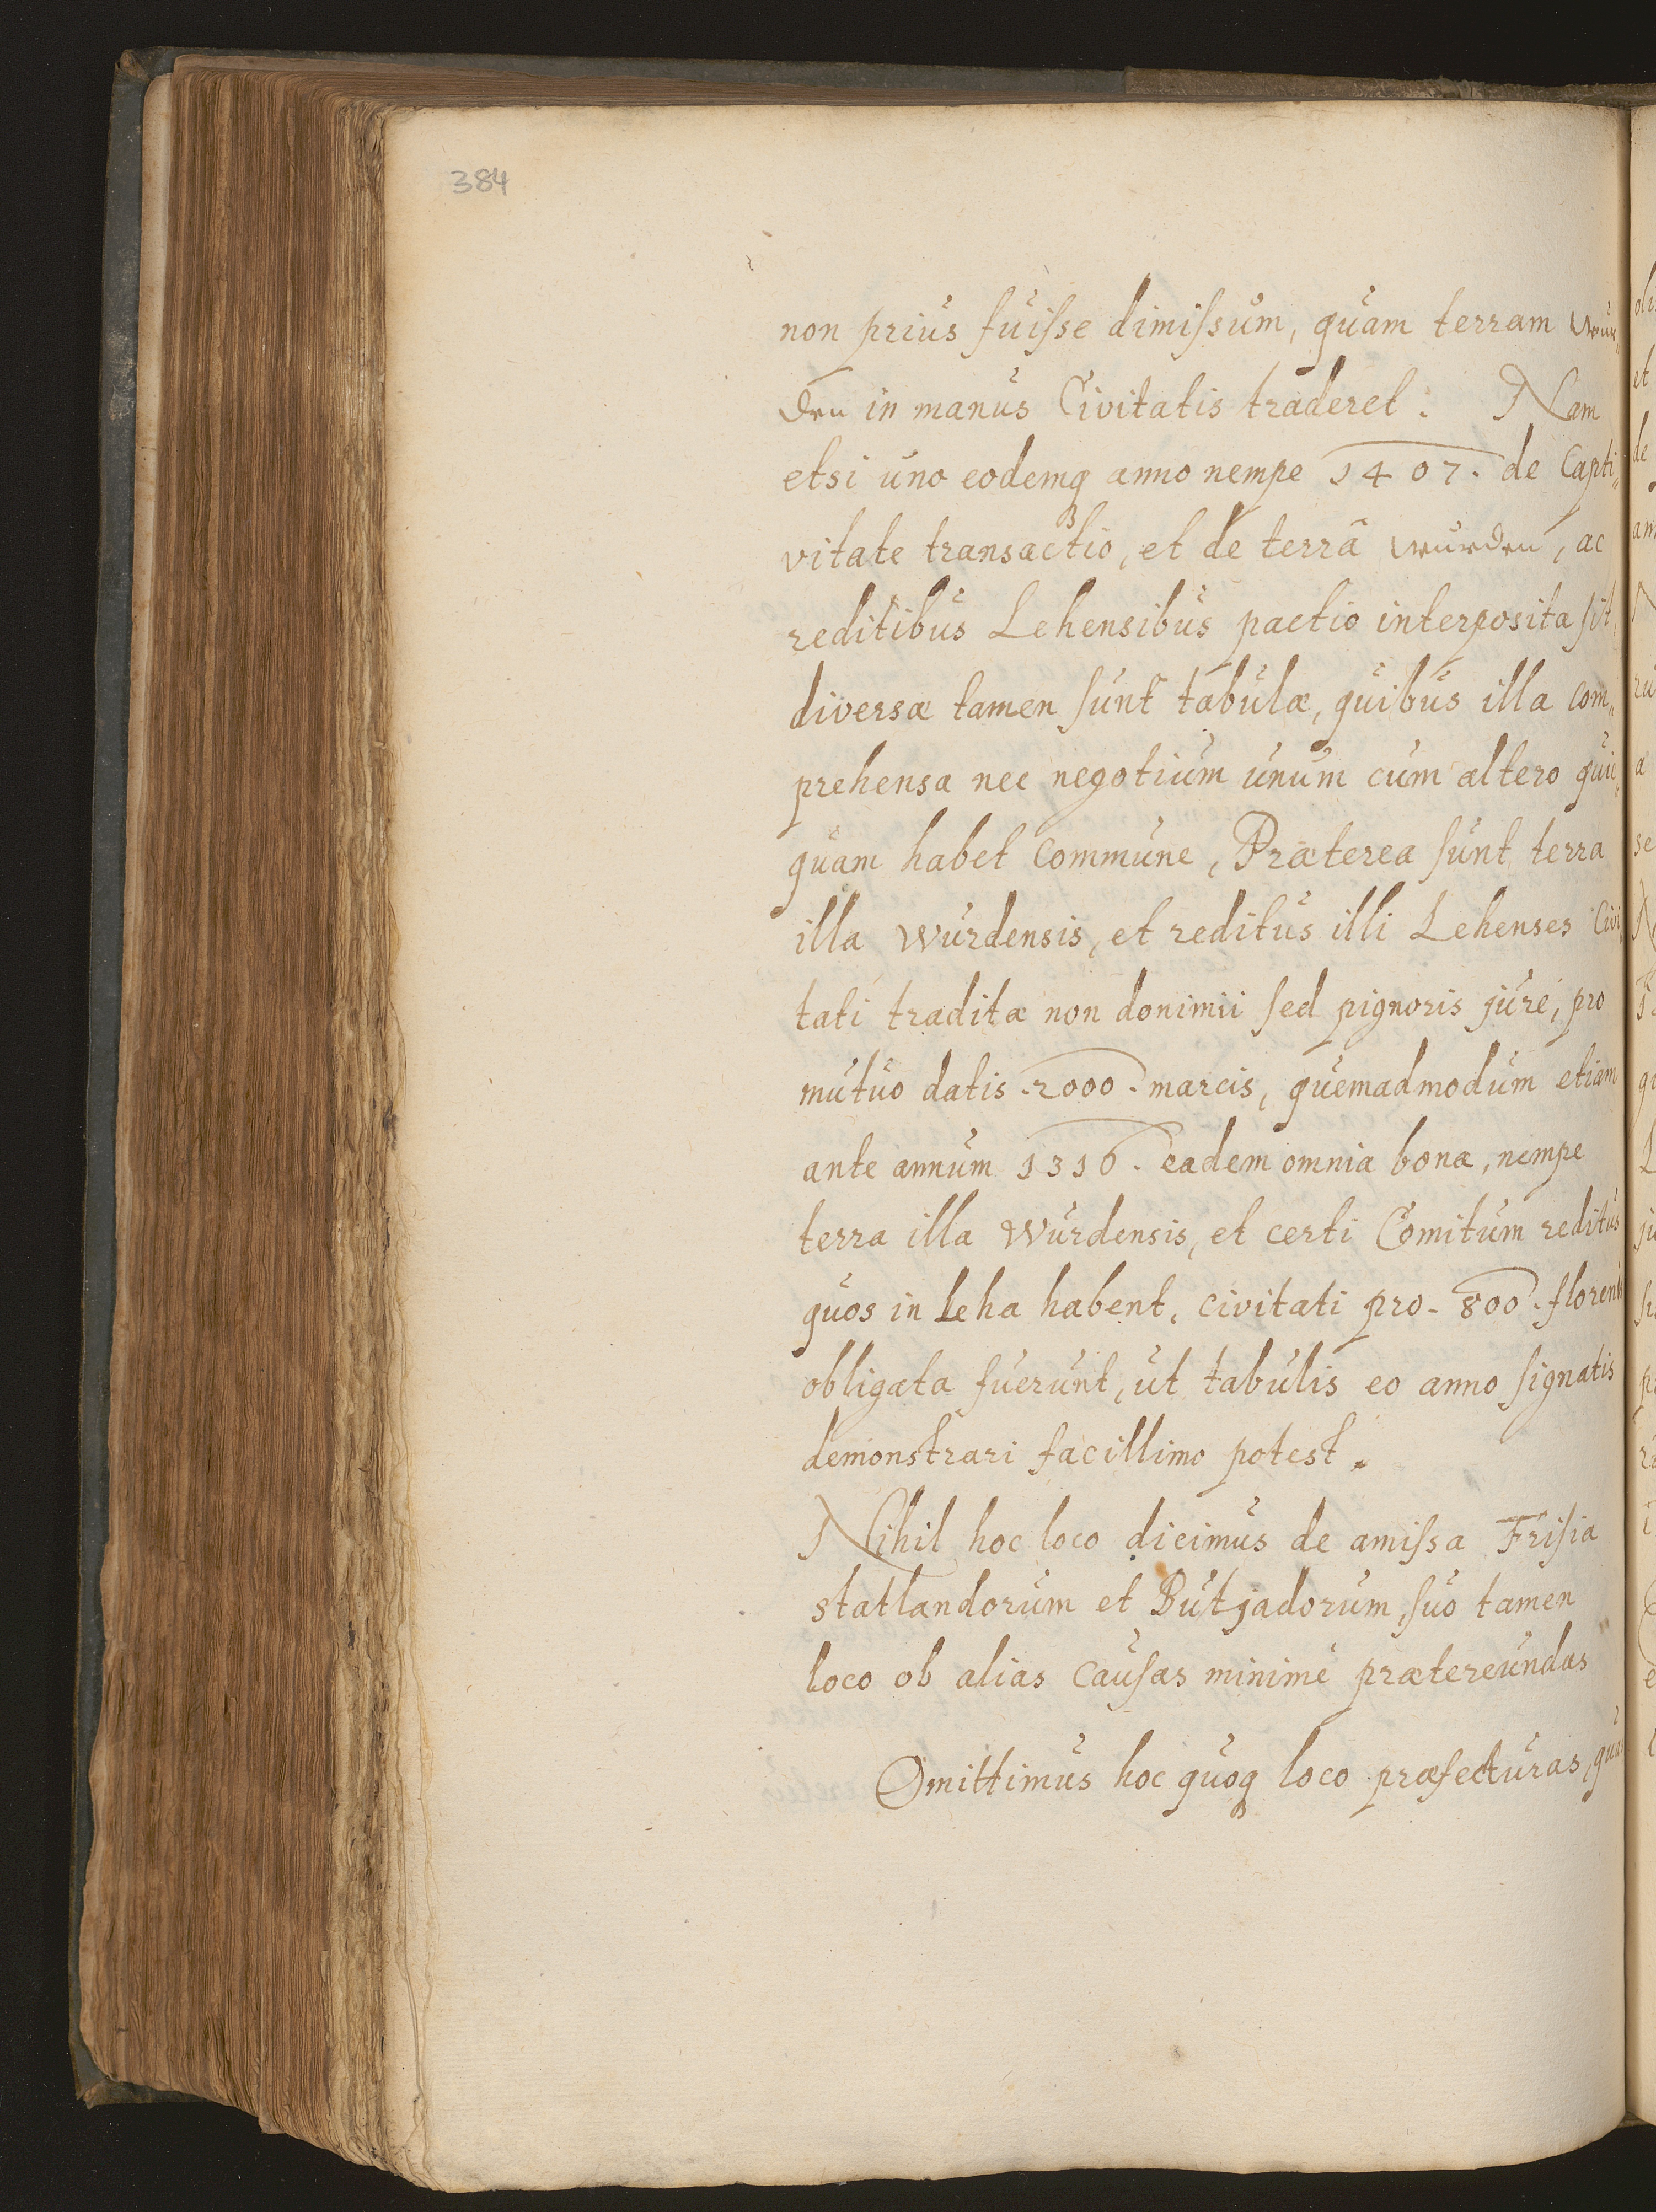 384
non prius fuiſse dimiſsum, quam terram Wur„
den in manus Civitatis traderet. Nam
etsi uno eodemq anno nempe 1407. de Capti„
vitate transactio, et de terrâ Wurden, ac
reditibus Lehensibus pactio interposita ſit,
diversæ tamen ſunt tabulæ, quibus illa com„
prehensa nec negotium unum cum altero quic„
quam habet commune, Præterea ſunt terra
illa Wurdensis, et reditus illi Lehenses Civi„
tati traditæ non donimii ſed pignoris jure, pro
mutuo datis .2000. marcis, quemadmodum etiam
ante annum 1316. eadem omnia bona, nempe
terra illa Wurdensis, et certi Comitum reditus
quos in Leha habent, civitati pro. 800. florenis
obligata fuerunt, ut tabulis eo anno ſignatis
demonstrari facillimo potest.
Nihil hoc loco dicimus de amiſsa Friſia
statlandorum et Butjadorum, ſuo tamen
loco ob alias cauſas minimè prætereundas
Omittimus hoc quoq loco præfecturas, quas